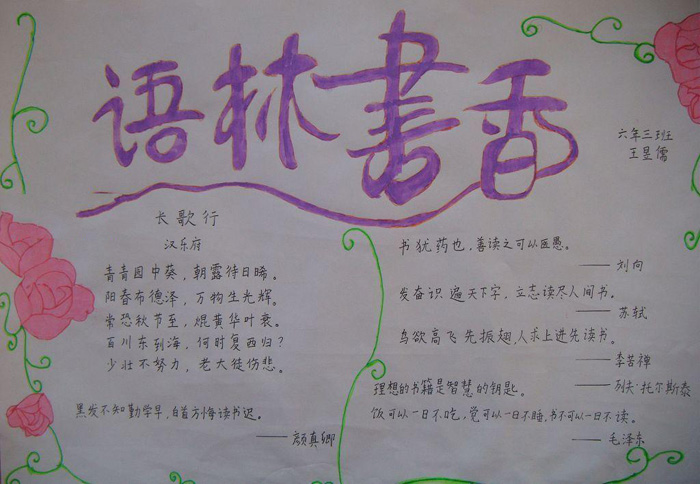 语林書香
六年三班
王昱儒
长歌行
汉乐府
青青园中葵，朝露待日晞。
阳春布德泽，万物生光辉。
常恐秋节至，焜黄华叶衰。
百川东到海，何时复西归？
少壮不努力，老大徒伤悲。
黑发不知勤学早，白首方悔读书迟。
——颜真卿
书犹药也，善读之可以医愚。
——刘向
发奋识遍天下字，立志读尽人间书。
——苏轼
鸟欲高飞先振翅，人求上进先读书。
——李苦禅
理想的书籍是智慧的钥匙。
——列夫·托尔斯泰
饭可以一日不吃，觉可以一日不睡，书不可以一日不读。
——毛泽东